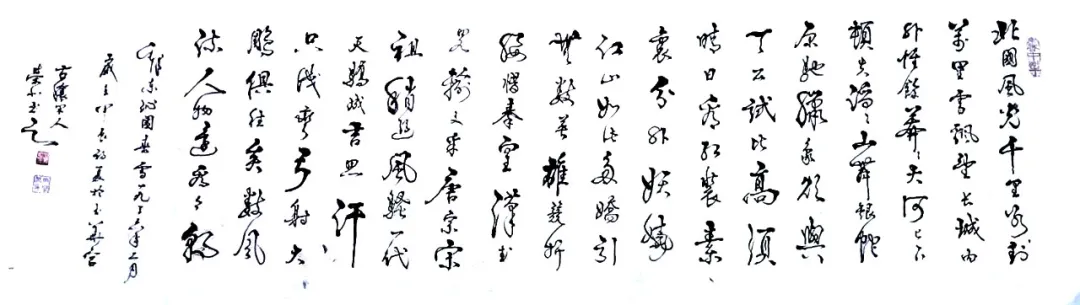 北國風光千里冰封
萬里雪飄望長城內
外惟餘莽〻大河上下
頓失滔〻山舞銀蛇
原馳臘象欲與
天公試比高須
晴日看紅裝素
裹分外妖嬈
江山如此多嬌引
無數英雄競折
腰惜秦皇漢武
略輸文采唐宗宋
祖稍遜風騷一代
天驕成吉思汗
只識彎弓射大
鵰俱往矣數風
流人物還看今朝
沁園春雪一九三六年二月
初夏於